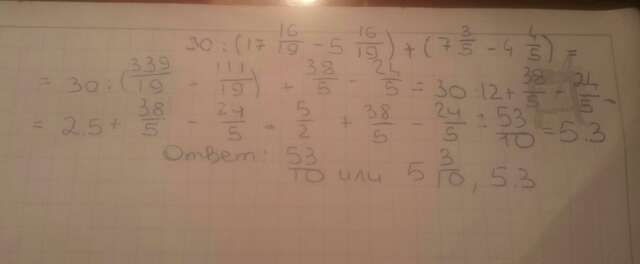 30 : (17 16/19 - 5 16/19) + (7 3/5 - 4 4/5) =
= 30 : (339/19 - 111/19) + 38/5 - 24/5 = 30 : 12 + 38/5 - 24/5 =
= 2.5 + 38/5 - 24/5 = 5/2 + 38/5 - 24/5 = 53/10 = 5.3
Ответ: 53/10 или 5 3/10, 5.3